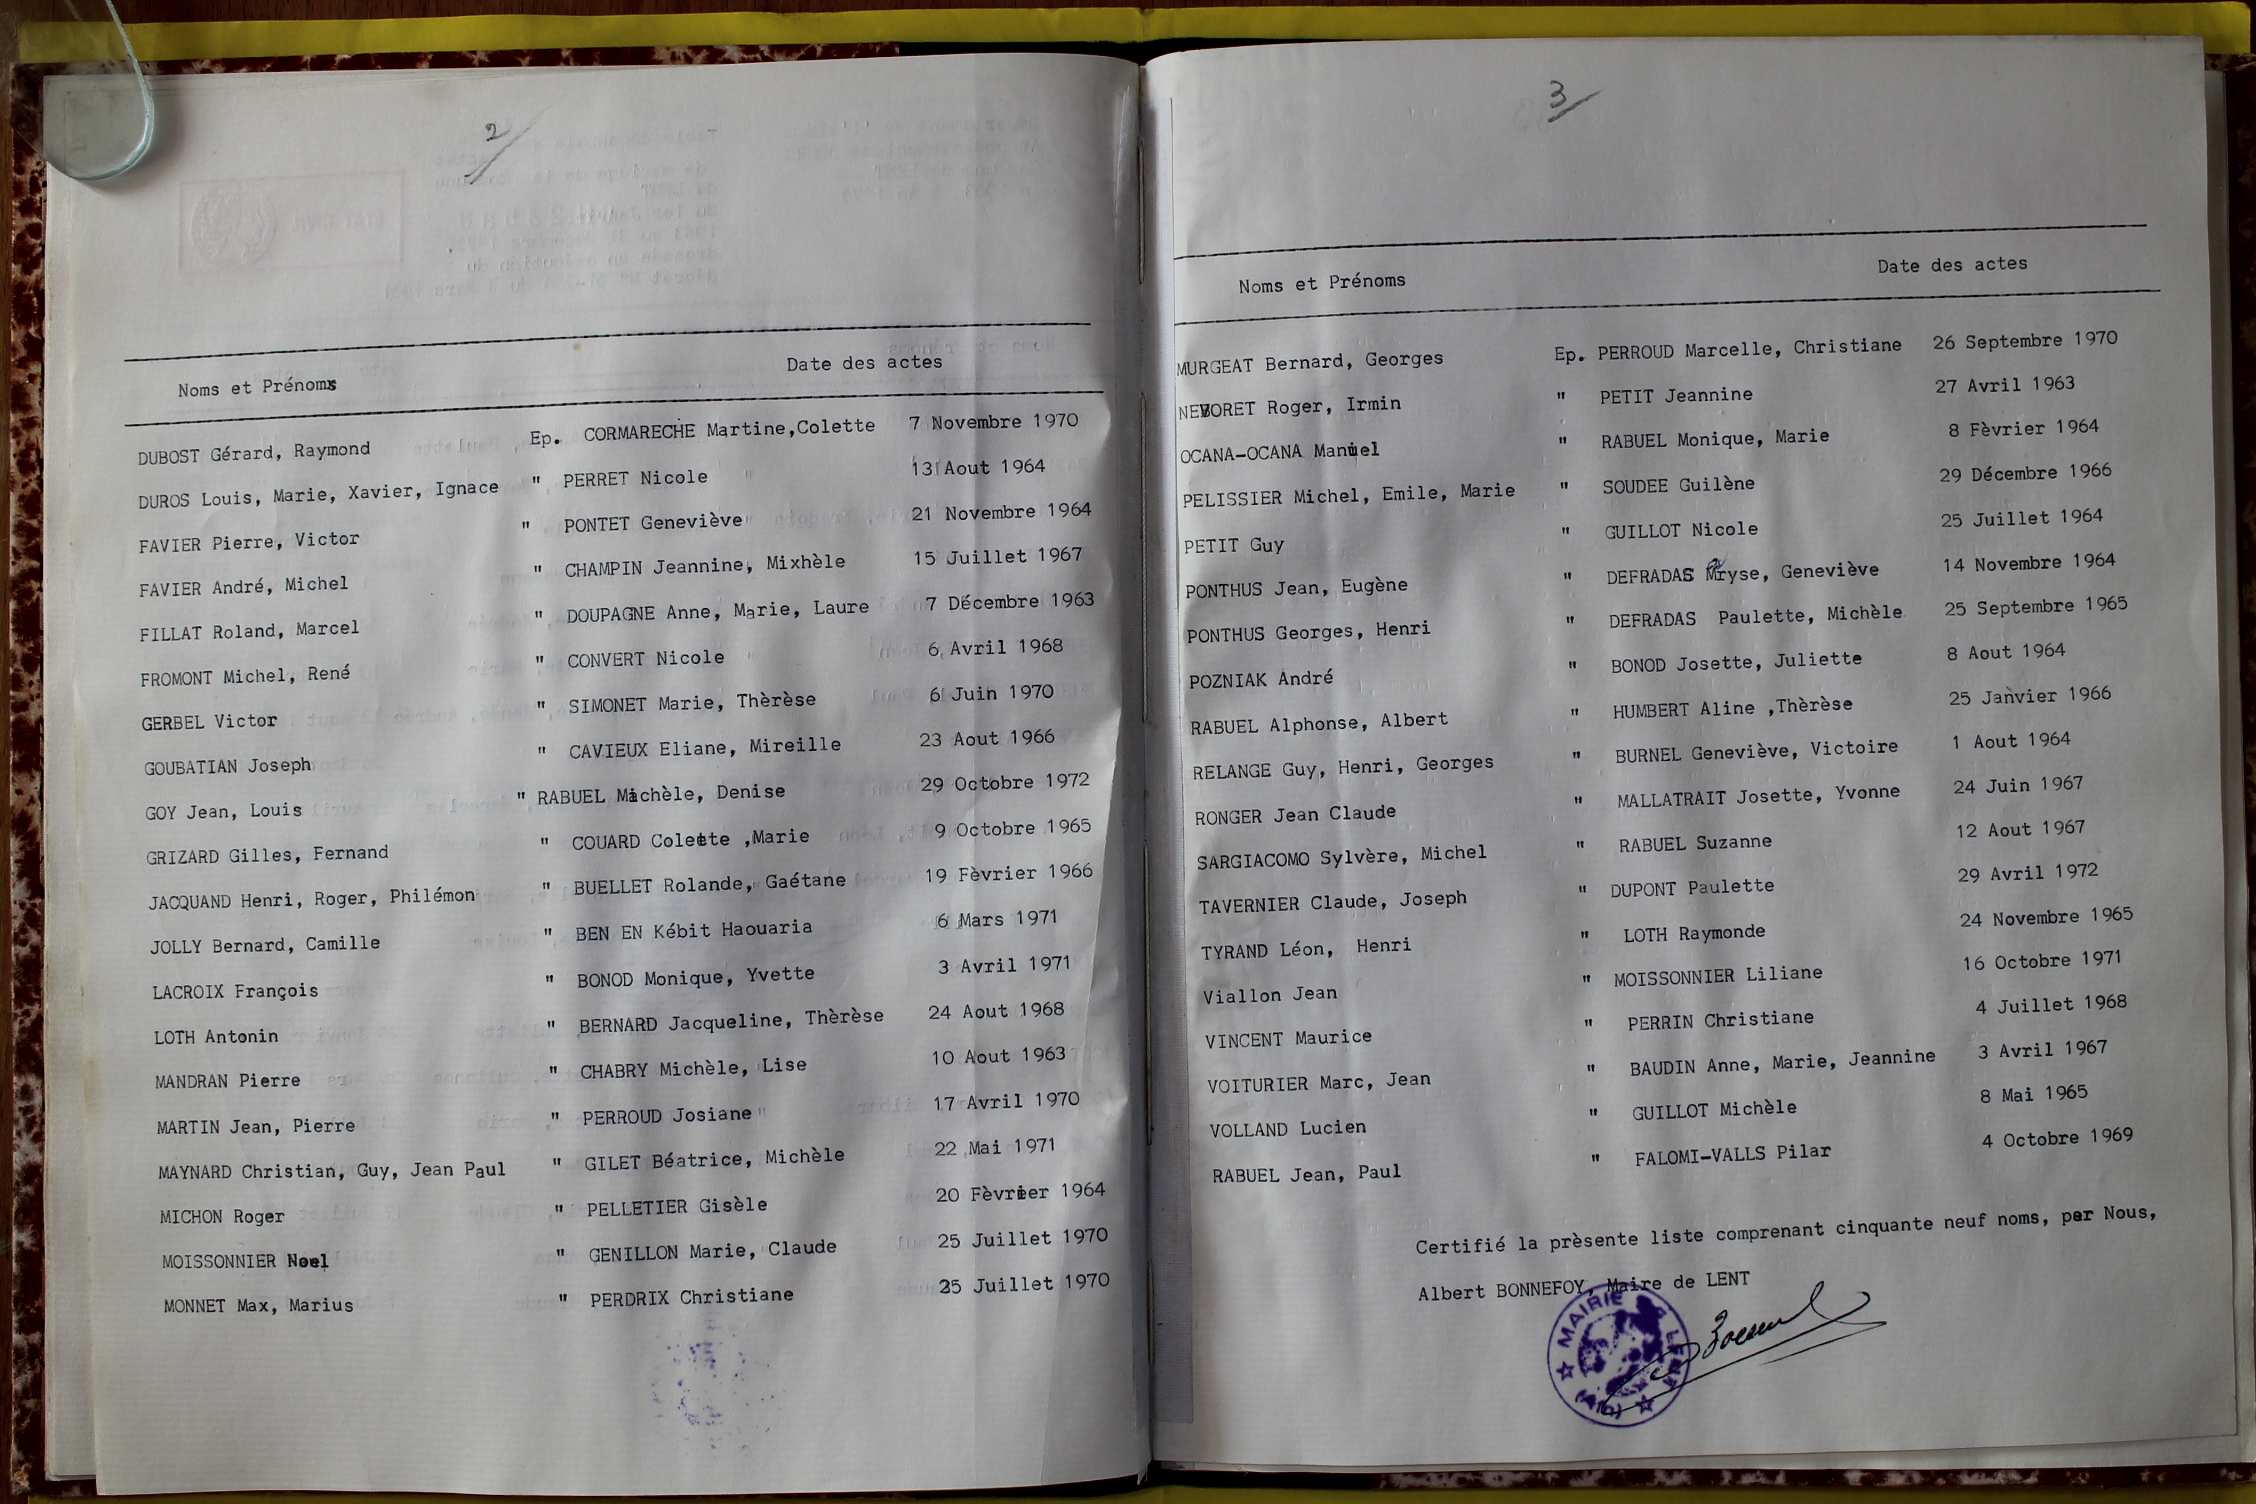 2/
Noms et Prénoms Date des actes
DUBOST Gérard, Raymond Ep. CORMARECHE Martine,Colette 7 Novembre 1970
DUROS Louis, Marie, Xavier, Ignace " PERRET Nicole 13 Aout 1964
FAVIER Pierre, Victor " PONTET Geneviève 21 Novembre 1964
FAVIER André, Michel " CHAMPIN Jeannine, Mixhèle 15 Juillet 1967
FILLAT Roland, Marcel " DOUPAGNE Anne, Marie, Laure 7 Décembre 1963
FROMONT Michel, René " CONVERT Nicole 6 Avril 1968
GERBEL Victor " SIMONET Marie, Thèrèse 6 Juin 1970
GOUBATIAN Joseph " CAVIEUX Eliane, Mireille 23 Aout 1966
GOY Jean, Louis " RABUEL Michèle, Denise 29 Octobre 1972
GRIZARD Gilles, Fernand " COUARD Colette ,Marie 9 Octobre 1965
JACQUAND Henri, Roger, Philémon " BUELLET Rolande, Gaétane 19 Fèvrier 1966
JOLLY Bernard, Camille " BEN EN Kébit Haouaria 6 Mars 1971
LACROIX François " BONOD Monique, Yvette 3 Avril 1971
LOTH Antonin " BERNARD Jacqueline, Thèrèse 24 Aout 1968
MANDRAN Pierre " CHABRY Michèle, Lise 10 Aout 1963
MARTIN Jean, Pierre " PERROUD Josiane 17 Avril 1970
MAYNARD Christian, Guy, Jean Paul " GILET Béatrice, Michèle 22 Mai 1971
MICHON Roger " PELLETIER Gisèle 20 Fèvrier 1964
MOISSONNIER Noel " GENILLON Marie, Claude 25 Juillet 1970
MONNET Max, Marius " PERDRIX Christiane 25 Juillet 1970
3/
Noms et Prénoms Date des actes
MURGEAT Bernard, Georges Ep. PERROUD Marcelle, Christiane 26 Septembre 1970
NEVORET Roger, Irmin " PETIT Jeannine 27 Avril 1963
OCANA-OCANA Manuel " RABUEL Monique, Marie 8 Fèvrier 1964
PELISSIER Michel, Emile, Marie " SOUDEE Guilène 29 Décembre 1966
PETIT Guy " GUILLOT Nicole 25 Juillet 1964
PONTHUS Jean, Eugène " DEFRADAS Maryse, Geneviève 14 Novembre 1964
PONTHUS Georges, Henri " DEFRADAS Paulette, Michèle 25 Septembre 1965
POZNIAK André " BONOD Josette, Juliette 8 Aout 1964
RABUEL Alphonse, Albert " HUMBERT Aline ,Thèrèse 25 Janvier 1966
RELANGE Guy, Henri, Georges " BURNEL Geneviève, Victoire 1 Aout 1964
RONGER Jean Claude " MALLATRAIT Josette, Yvonne 24 Juin 1967
SARGIACOMO Sylvère, Michel " RABUEL Suzanne 12 Aout 1967
TAVERNIER Claude, Joseph " DUPONT Paulette 29 Avril 1972
TYRAND Léon, Henri " LOTH Raymonde 24 Novembre 1965
Viallon Jean " MOISSONNIER Liliane 16 Octobre 1971
VINCENT Maurice " PERRIN Christiane 4 Juillet 1968
VOITURIER Marc, Jean " BAUDIN Anne, Marie, Jeannine 3 Avril 1967
VOLLAND Lucien " GUILLOT Michèle 8 Mai 1965
RABUEL Jean, Paul " FALOMI-VALLS Pilar 4 Octobre 1969
Certifié la prèsente liste comprenant cinquante neuf noms, par Nous,
Albert BONNEFOY, Maire de LENT
MAIRIE DE LENT (Ain)